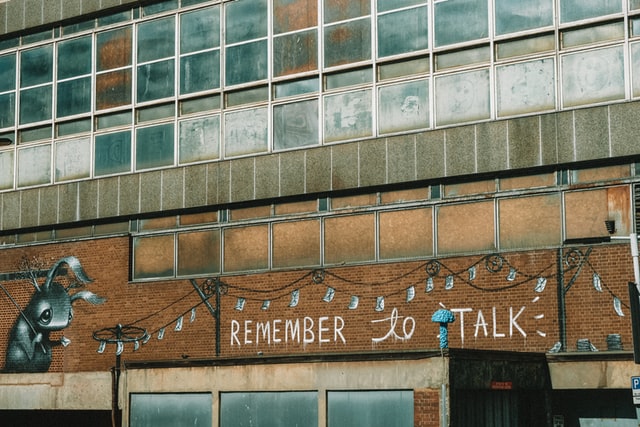 REMEMBER to TALK
P